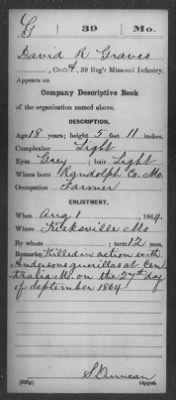 G 39 Mo.
David R Graves
, Co. A, 39 Reg't Missouri Infantry.
Appears on
Company Descriptive Book
of the organization named above.
DESCRIPTION.
Age 18 years; height 5 feet 11 inches.
Complexion Light
Eyes Grey; hair Light
Where born Randolph Co. Mo.
Occupation Farmer
ENLISTMENT.
When Aug 1, 1864.
Where Kirksville Mo
By whom ; term 12 mo.
Remarks: Killed in action with
Andersons guerillas at Cen
tralia Mo. on the 27th day
of September 1864
S Duncan
Copyist.